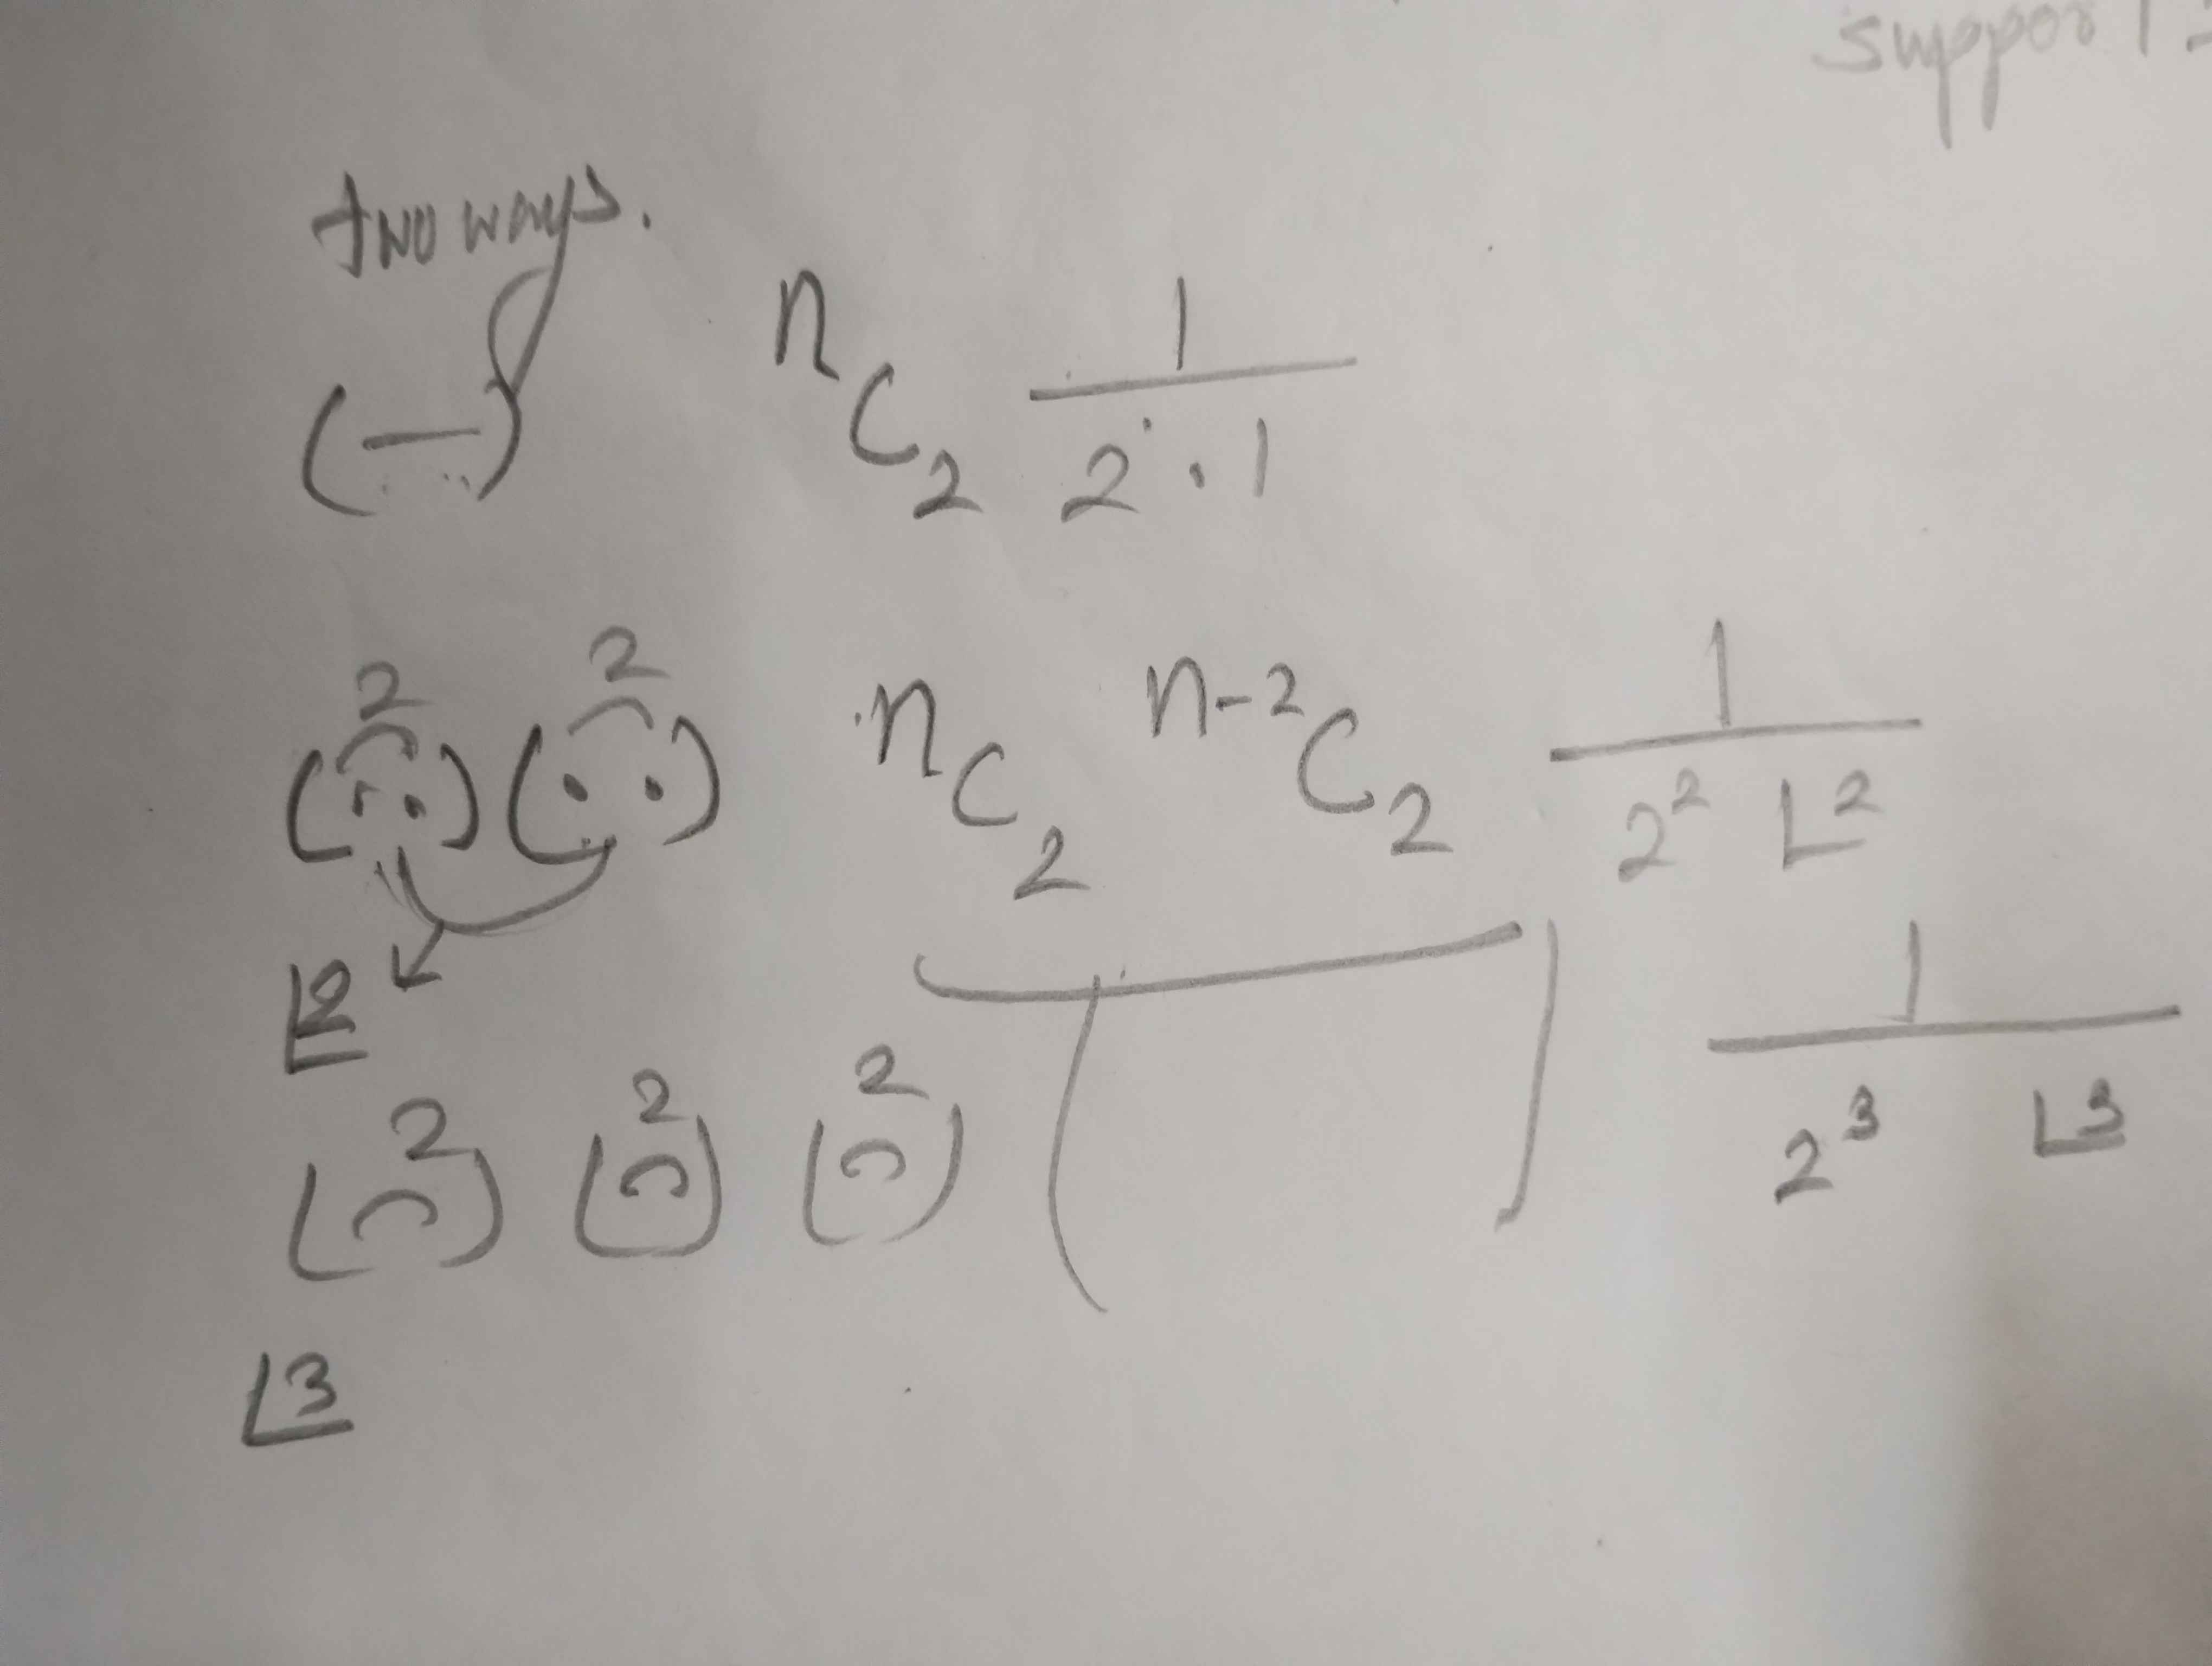 suppor
two ways.
(—) nC₂ 1/(2·1)
2 2
(..) (. .) nC₂ n-2C₂ 1/(2² L2)
L2
2 2 2
( ) ( ) ( ) ( ) 1/(2³ L3)
L3